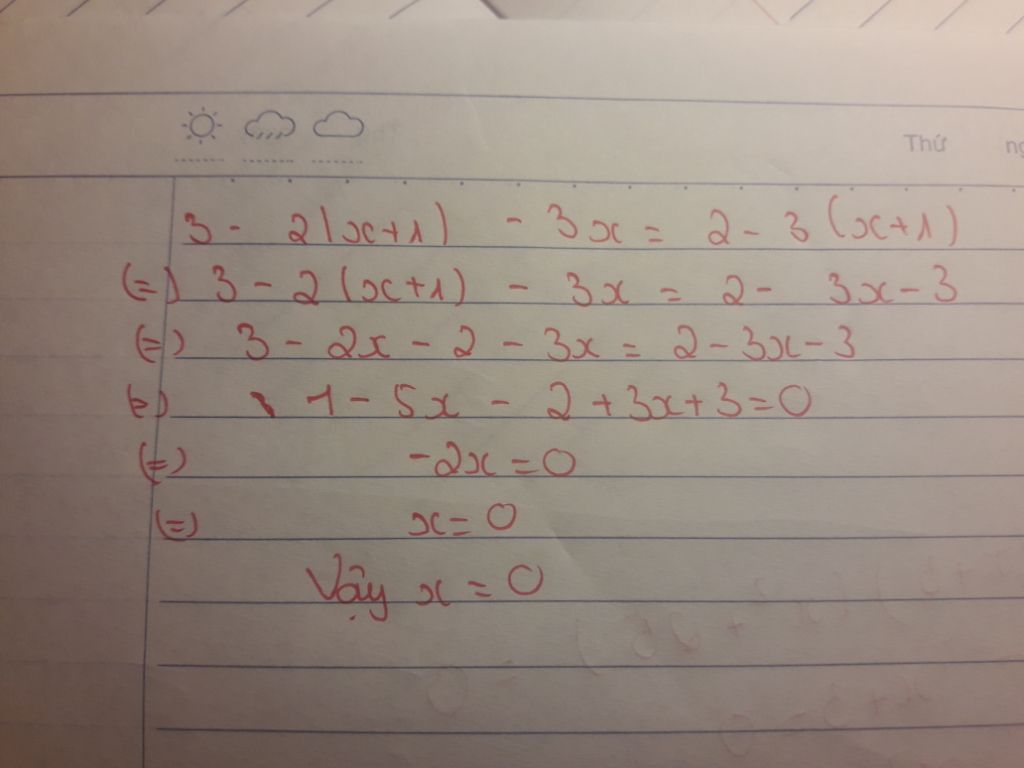 Thứ
3 - 2(x+1) - 3x = 2 - 3(x+1)
(=) 3 - 2(x+1) - 3x = 2 - 3x - 3
(=) 3 - 2x - 2 - 3x = 2 - 3x - 3
(=) 1 - 5x - 2 + 3x + 3 = 0
(=) -2x = 0
(=) x = 0
Vậy x = 0